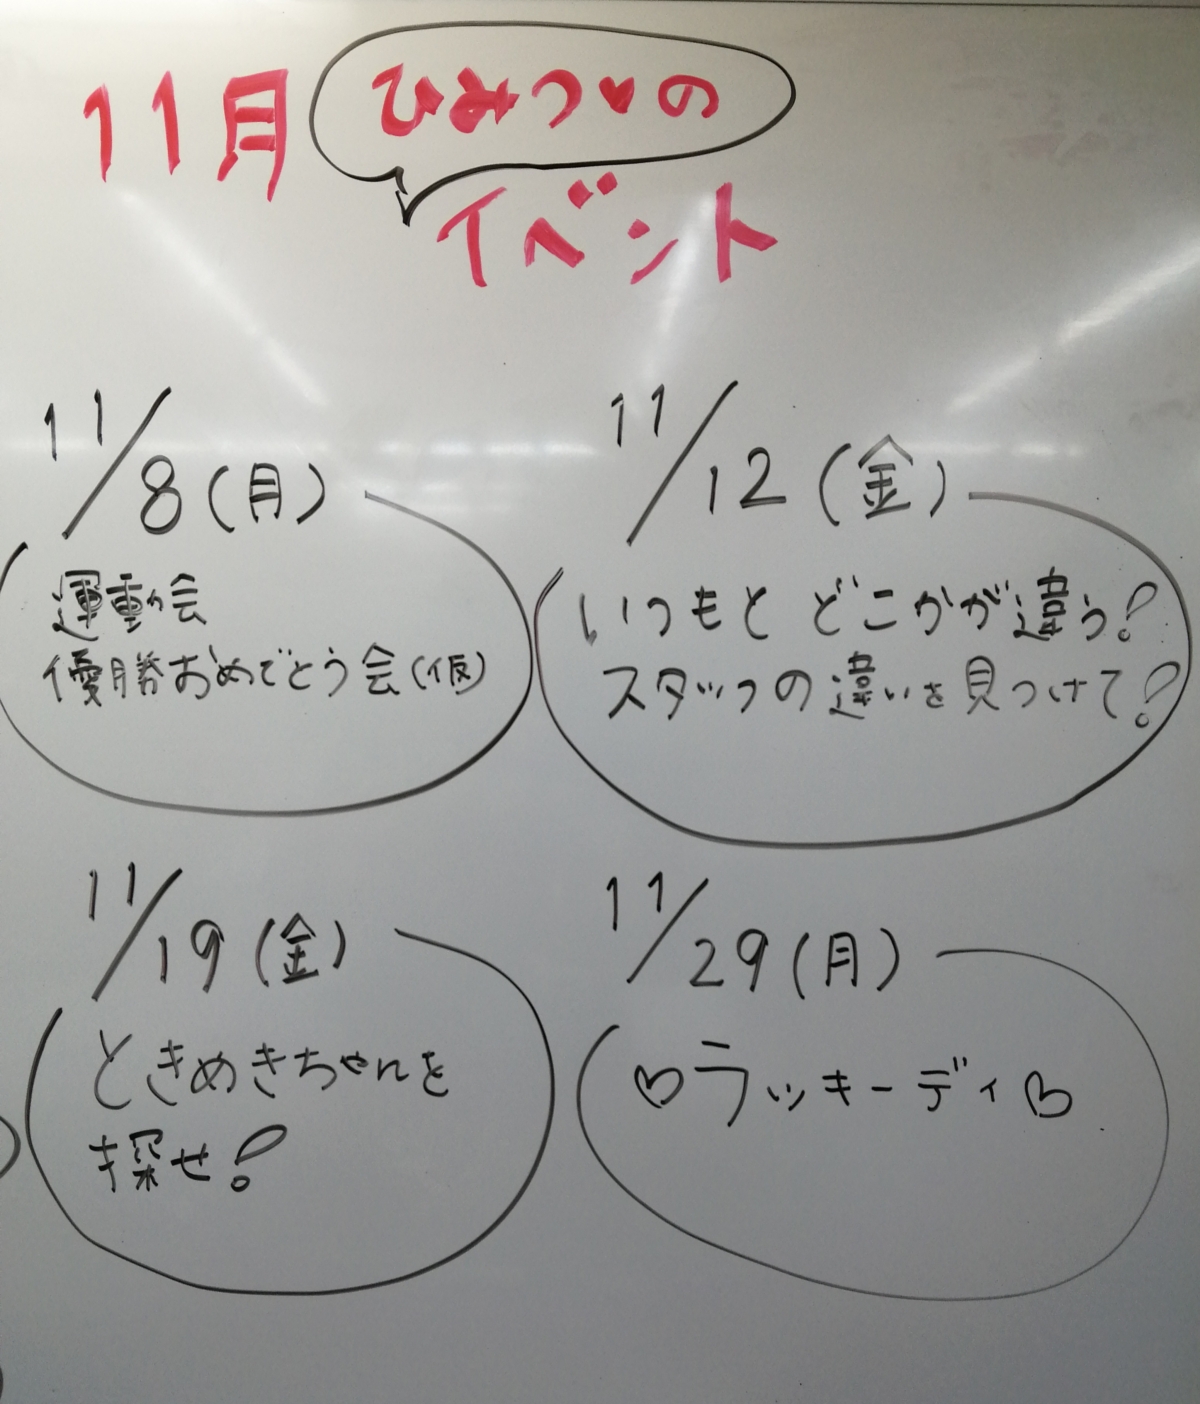 11月 ひみつ♥の
イベント
11/8(月)
運動会
優勝おめでとう会(仮)
11/12(金)
いつもと どこかが違う!
スタッフの違いを見つけて!
11/19(金)
ときめきちゃんを
探せ!
11/29(月)
♡ラッキーディ♡